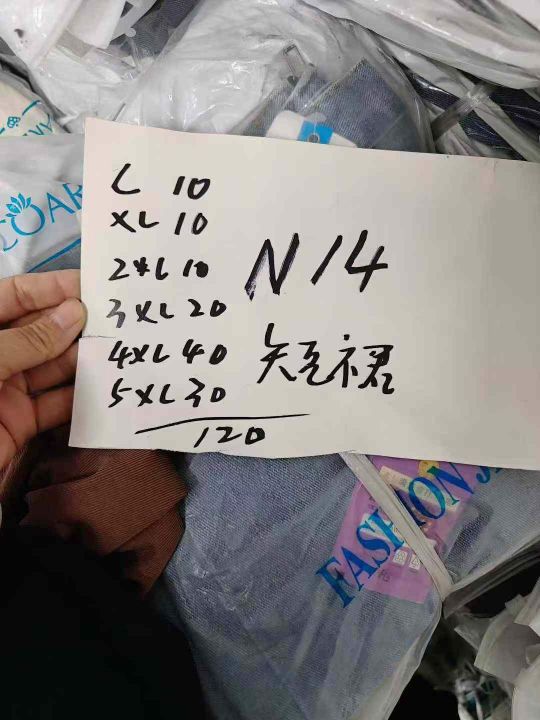 L 10
XL 10
2XL 10
3XL 20
4XL 40
5XL 30
120
N14
短裙
FASHION